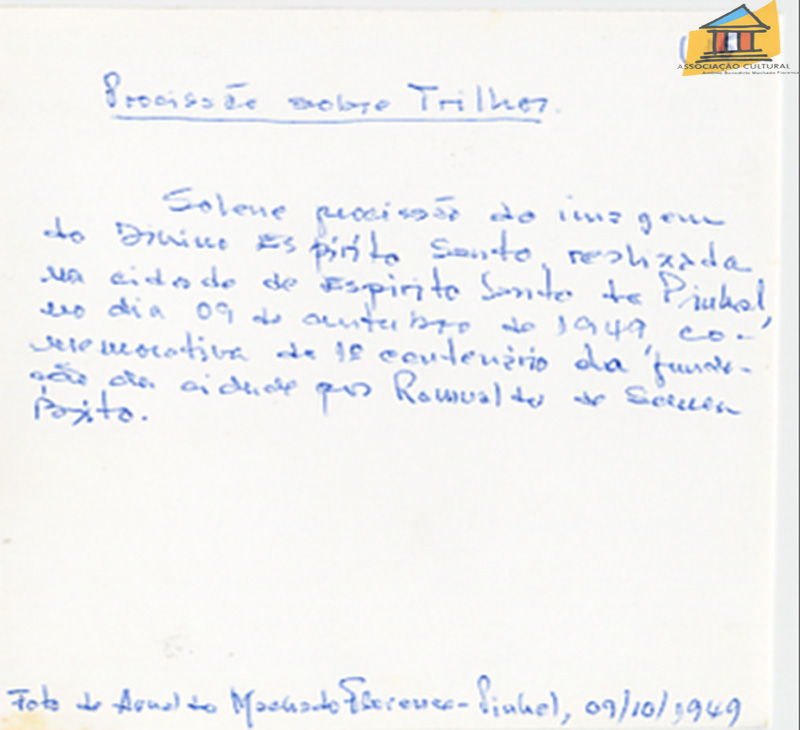 ASSOCIAÇÃO CULTURAL
Antonio Benedicto Machado Florence
Procissão sobre Trilhos.
Solene procissão da imagem
do Divino Espírito Santo, realizada
na cidade de Espirito Santo do Pinhal,
no dia 09 de outubro de 1949 co-
memorativa do 1º centenário da funda-
ção da cidade por Romualdo de Souza
Brito.
Foto de Arnaldo Machado Florence - Pinhal, 09/10/1949